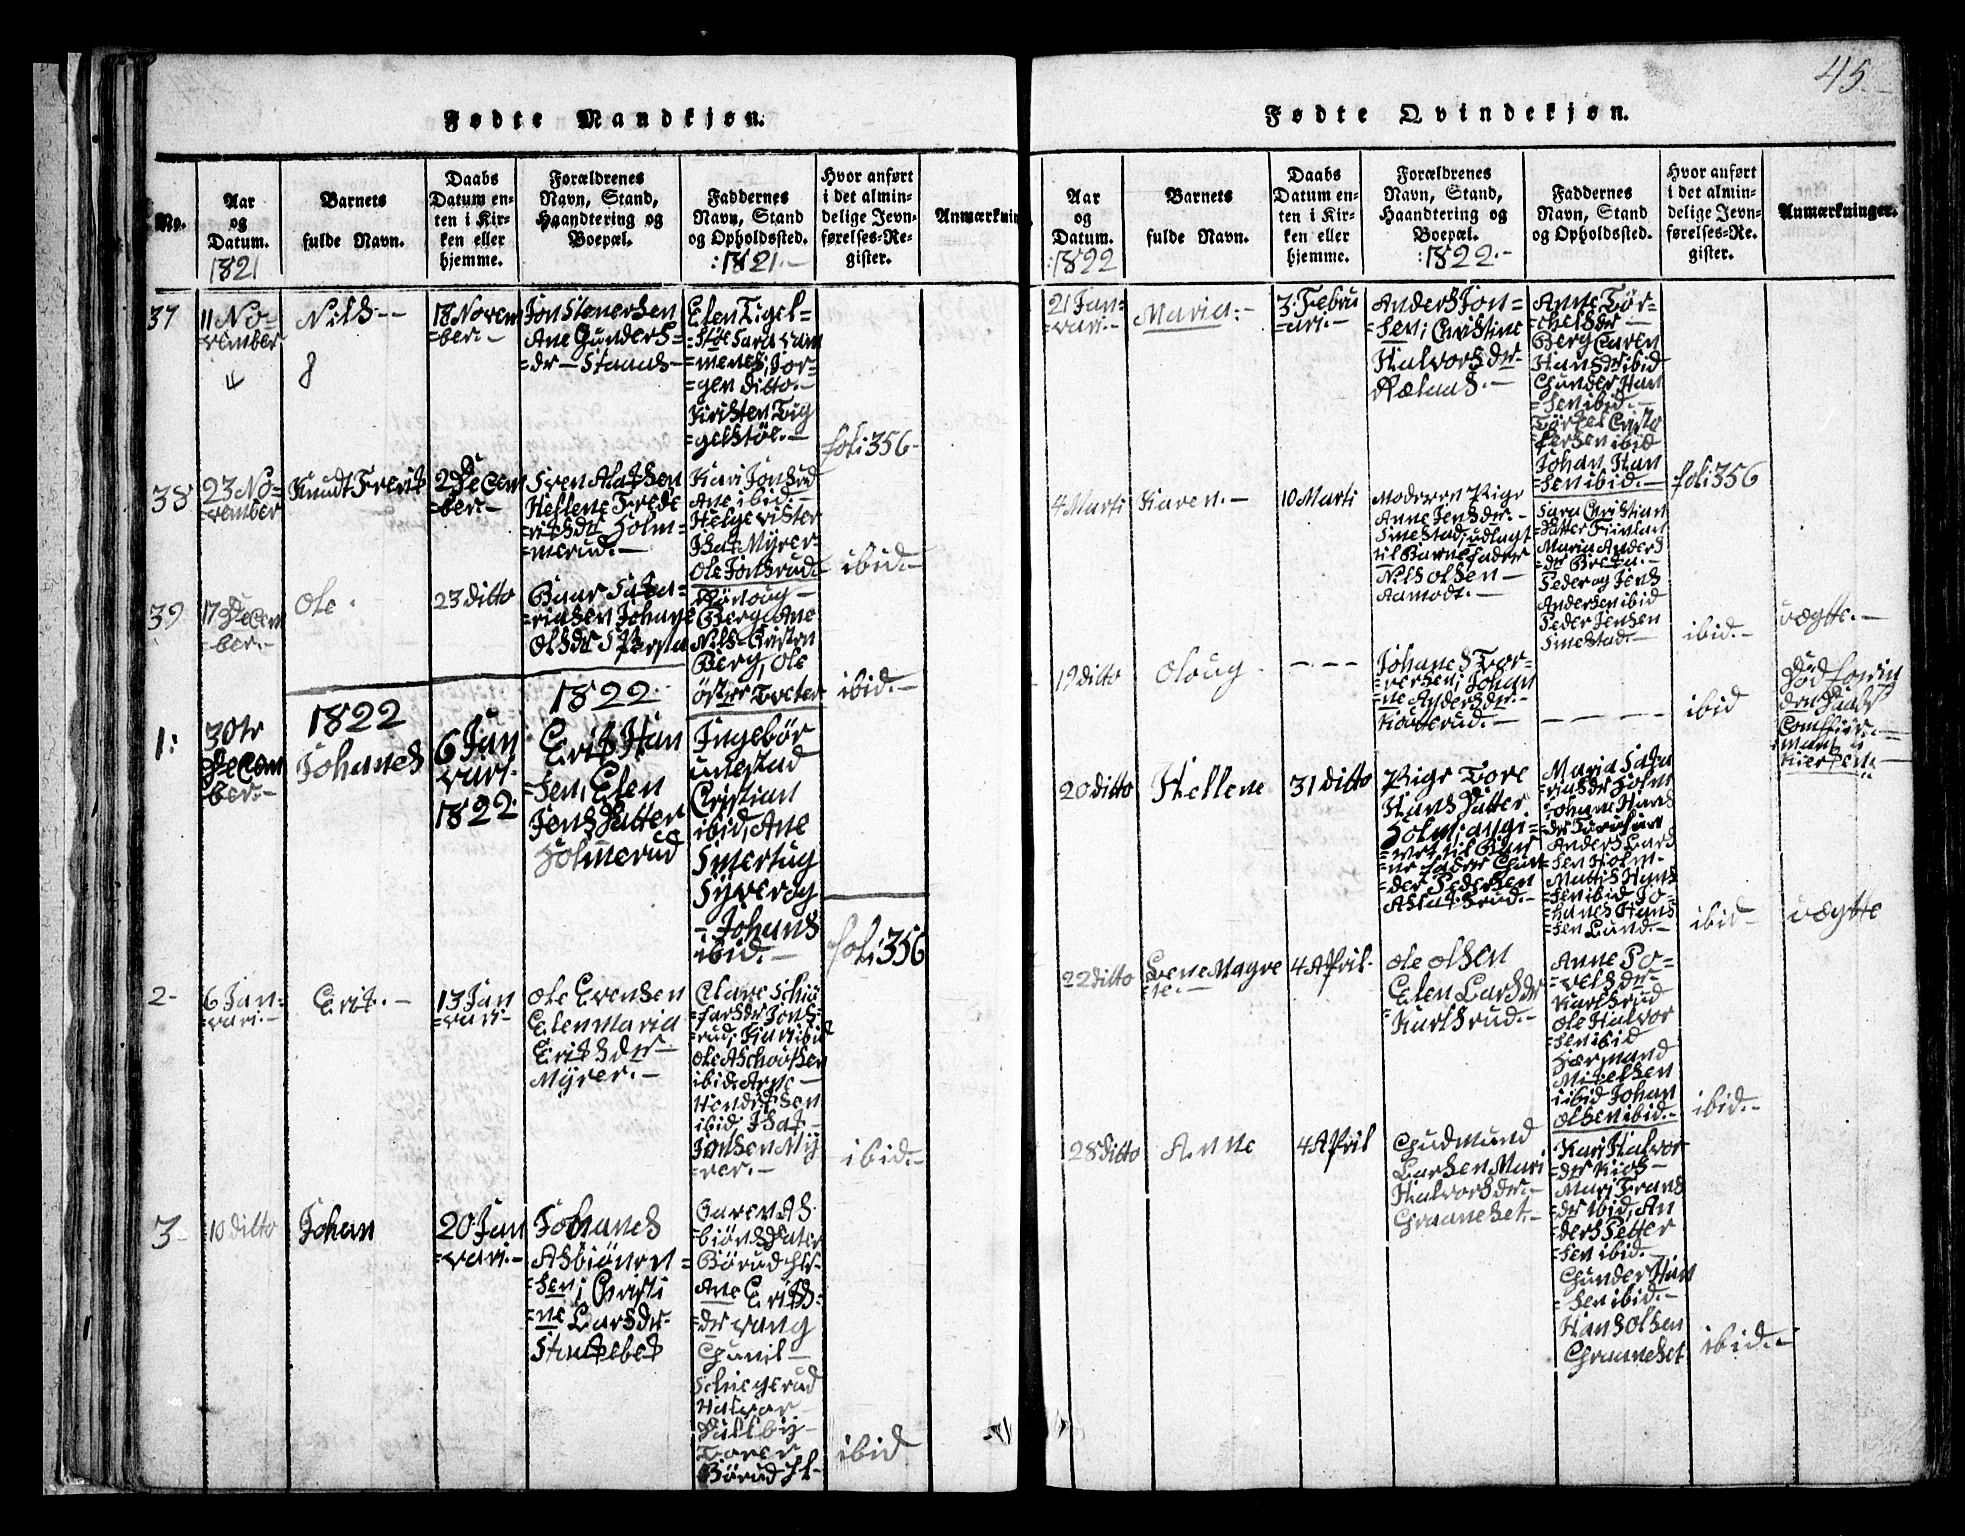 45.
Fødte Mandkjøn.
No.
Aar
og
Datum.
1821
Barnets
fulde Navn.
Daabs
Datum en-
ten i Kir-
ken eller
hjemme.
Forældrenes
Navn, Stand,
Haandtering og
Boepæl.
Faddernes
Navn, Stand
og Opholdssted.
:1821.-
Hvor anført
i det almin-
delige Jevn-
førelses-Re-
gister.
Anmærkning
37
11 No-
=vember
Nils--
18 Novem
=ber.-
Jon Stenersen
Ane Gunders=
=dr-Staaas-
Elen Tigel-
=støe Sara
Jør-
=gen ditto.-
Kirsten Tig
gelstøe.-
foli 356-
38
23 No-
=vember
Knudt Frerik
2 Decem
=ber.-
Sven Aslaksen
Hellene Frede
=riksdr Holm-
=merud.-
Kari Jonsrud
Ane ibid.-
Helge
Isak Myrer-
Ole Jonsrud.-
ibid.-
39
17 Decem
=ber.-
Ole.
23 ditto
=riasen Johane
Olsdr
Rønoug-
Berg Ane
Nils-Cristen
Berg, Ole
østre Tveter
ibid.-
1822
1822.
1:
30te
Decem
ber.-
Johanes
6 Jan
vari.
1822.
Erik Han
=sen, Elen
Jens Datter
Holmerud
Ingebør
Cristian
ibid, Ane
Smertug
Syver og
-Johans
ibid.-
foli 356
2-
6 Jan=
=vari.-
Erik.-
13 Jan
=vari-
Ole Evensen
Elen Maria
Eriksdr-
Myrer.-
ibid, Arne-
ibid, Isak-
Jonsen My
rer.-
ibid.-
3
10 ditto
Johan
20 Jan
=vari.-
Johanes
Asbiønen=
=sen, Cristi
=ne Larsdr-
Stikkebek
Caren As-
=biønsdater
Børud
Ane Eriks-
=dr vang
Gunil-
Halvor-
Børud
ibid
Fødte Qvindekjøn.
Aar
og
Datum.
:1822
Barnets
fulde Navn.
Daabs
Datum en-
ten i Kir-
ken eller
hjemme.
Forældrenes
Navn, Stand,
Haandtering og
Boepæl.
:1822.-
Faddernes
Navn, Stand
og Opholdssted.
Hvor anført
i det almin-
delige Jevn-
førelses-Re-
gister.
Anmærkninger.
21 Jan-
=vari.-
Maria.-
3. Febru
=ari.-
Anders Jon-
=sen, Cristine
Halvorsdr-
Anne Tør-
=chelsdr-
Berg Caren
Hansdr ibid
Gunder Han
=sen ibid.-
Tørgel Cristo
fersen ibid
Johan Han
=sen ibid.-
foli 356
4 Marti
Karen.-
10 Marti
Moderen Pige
Anne Jensdr.-
Smestad, udlagt
til Barnefader
Nils Olsen-
Aamodt.-
Sara Cristian
Datter
Maria Anders
=dr Breda.-
Peder og Jens
Andersen ibid
Peder Jensen
Smestad.-
ibid.-
uægtte.-
19 ditto
Oloug
- - -
Johanes Tor-
=versen, Johan
=ne Andersdr.-
- - - -
ibid
20 ditto
Hellene
31 ditto
Pige Tore
Hans Datter
Holm, angi-
=vet til Bar
=ne fader Gun
=der Pedersen
Aslaksrud.-
Maria Saka
=riasdr Holm
Johane Hans
Anders Lars
=sen Holm.-
Mattis Hans
=sen ibid Jo-
=hanes Hans
=sen Lund.-
ibid-
uægtte
22 ditto
Lene Magre
=te.-
4 April.
Ole Olsen
Elen Larsdr
Karlsrud.-
Anne Po-
=velsdr-
Karlsrud
Ole Halvor
=sen ibid
Hermand
Mikelsen
ibid Johan
Olsen ibid.-
ibid.-
28 ditto
Anne
4 April
Gudmund
Larsen Mari
Halvorsdr.-
Graaneset.-
Kari Halvor
=dr
Mari Frans
=dr ibid, An
ders Petter
=sen ibid.-
Gunder Han
=sen ibid.-
Hans Olsen
Graaneset
ibid.-